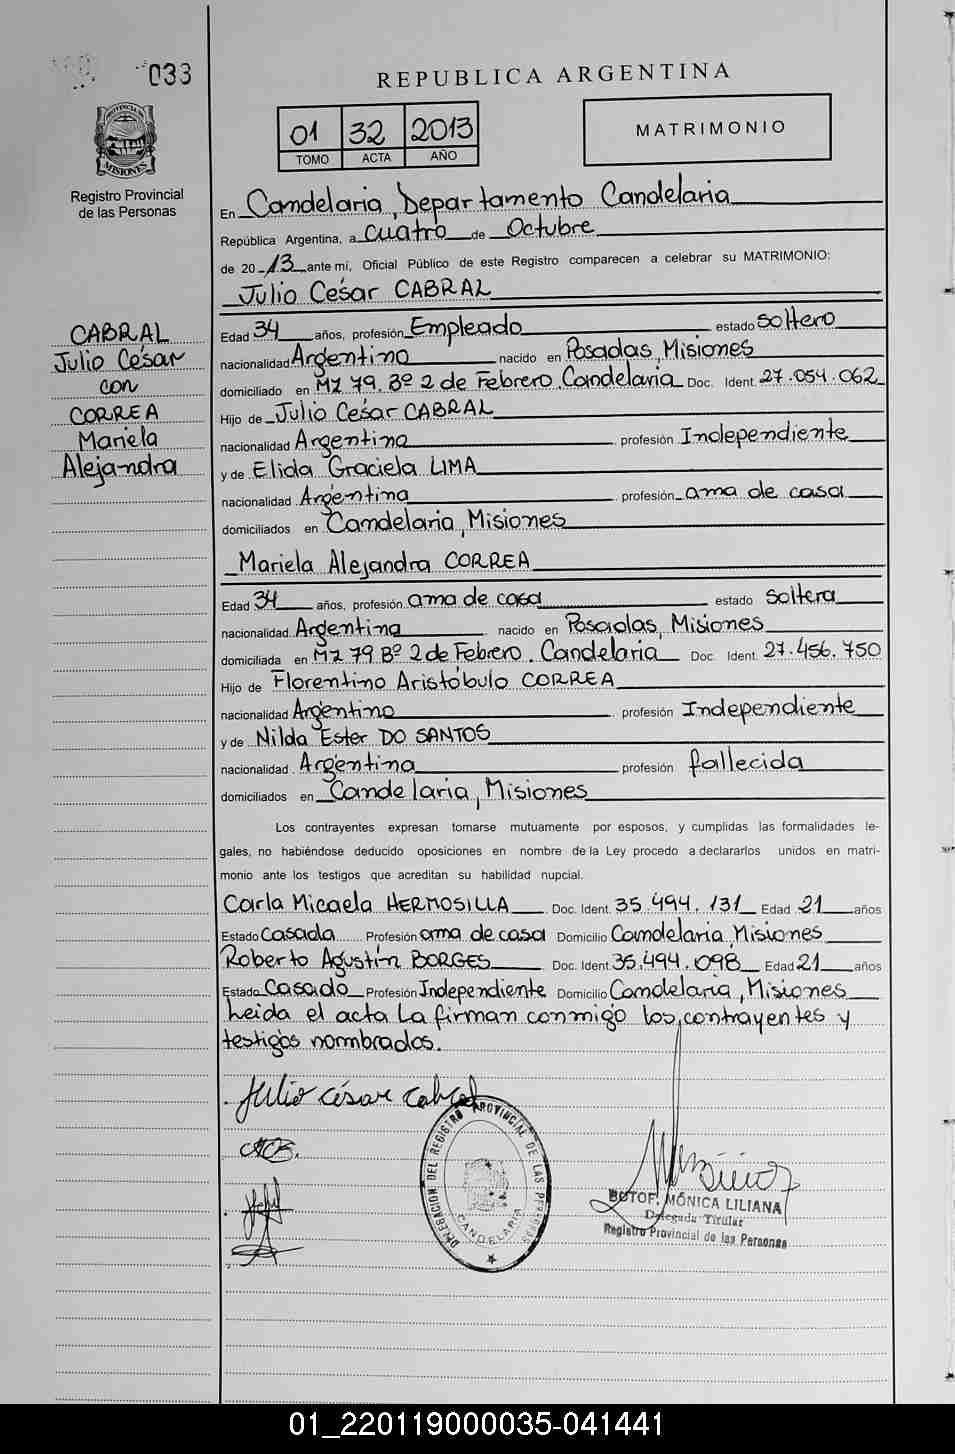 033
REPUBLICA ARGENTINA
01 32 2013
TOMO ACTA AÑO
MATRIMONIO
PROVINCIA DE
MISIONES
Registro Provincial
de las Personas
En Candelaria, Departamento Candelaria
República Argentina, a cuatro de Octubre
de 20 13 ante mí, Oficial Público de este Registro comparecen a celebrar su MATRIMONIO:
Julio César CABRAL
CABRAL
Julio César
con
CORREA
Mariela
Alejandra
Edad 34 años, profesión Empleado estado soltero
nacionalidad Argentino nacido en Posadas, Misiones
domiciliado en Mz 79. Bº 2 de Febrero. Candelaria Doc. Ident. 27.054.062
Hijo de Julio César CABRAL
nacionalidad Argentino profesión Independiente
y de Elida Graciela LIMA
nacionalidad Argentina profesión ama de casa
domiciliados en Candelaria, Misiones
Mariela Alejandra CORREA
Edad 34 años, profesión ama de casa estado soltera
nacionalidad Argentina nacido en Posadas, Misiones
domiciliada en Mz 79 Bº 2 de Febrero. Candelaria Doc. Ident. 27.456.750
Hijo de Florentino Aristóbulo CORREA
nacionalidad Argentino profesión Independiente
y de Nilda Ester DO SANTOS
nacionalidad Argentina profesión fallecida
domiciliados en Candelaria, Misiones
Los contrayentes expresan tomarse mutuamente por esposos, y cumplidas las formalidades le-
gales, no habiéndose deducido oposiciones en nombre de la Ley procedo a declararlos unidos en matri-
monio ante los testigos que acreditan su habilidad nupcial.
Carla Micaela HERMOSILLA Doc. Ident. 35.494.131 Edad 21 años
Estado Casada Profesión ama de casa Domicilio Candelaria, Misiones
Roberto Agustín BORGES Doc. Ident. 35.494.098 Edad 21 años
Estado Casado Profesión Independiente Domicilio Candelaria, Misiones
Leida el acta La firman conmigo los contrayentes y
testigos nombrados.
Julio césar cabral
DELEGACION DEL REGISTRO PROVINCIAL DE LAS PERSONAS
CANDELARIA
BOTOF. MÓNICA LILIANA
Delegada Titular
Registro Provincial de las Personas
01_220119000035-041441